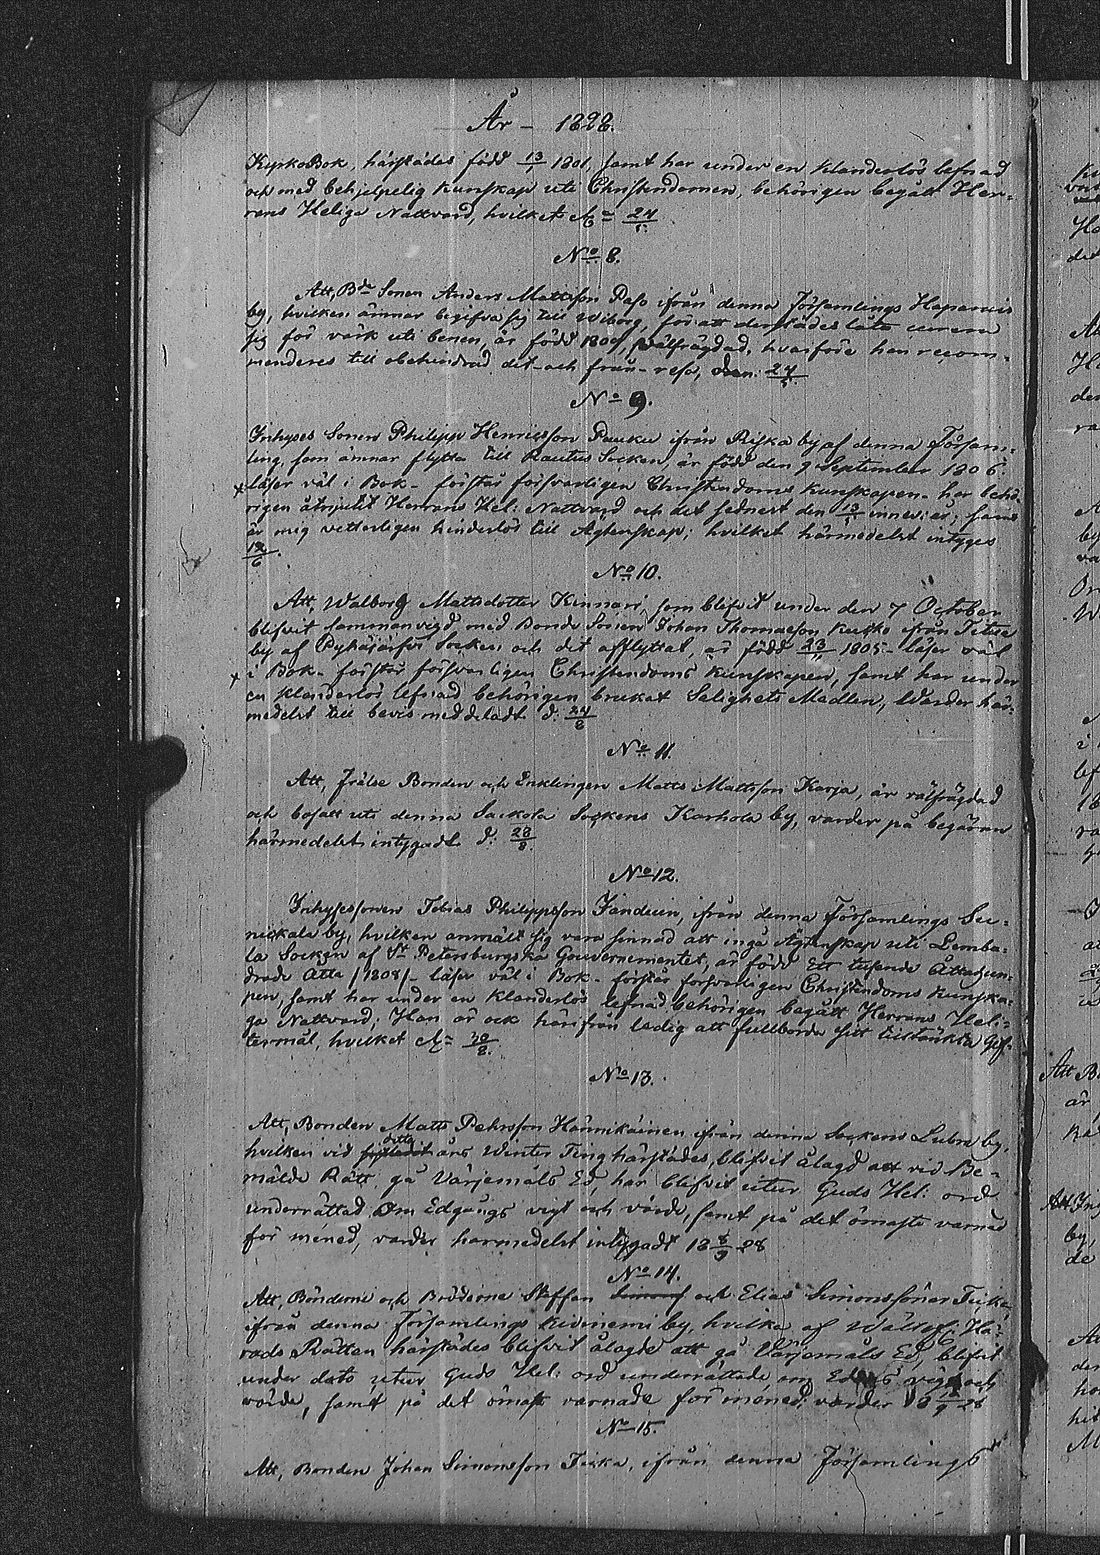 År - 1828.
KyrkoBok, härstädes född 13/ 1801, samt har under en klanderlös lefnad
och med behjelpelig kunskap uti Christendomen, behörigen begått Her-
rens Helige Nattvard, hvilket 24/5.
No 8.
Att, Bde Sonen Anders Mattsson Paso ifrån denna Församlings Hapanais
by, hvilken ämnar begifva sig till Wiborg, för att derstädes låta curera
sig för värk uti benen, är född 1809, välfrägdad, hvarföre han recom-
menderes till obehindrad dit- och från-resa, den: 24/5.
No 9.
Inhyses Sonen Philipp Henricsson Pauku ifrån Riska by af denna Försam-
ling, som ämnar flytta till Rautus Socken, är född den 9 September 1806
x läser väl i Bok - förstår försvarligen Christendoms kunskapen - har behö-
rigen åtnjutit Herrans Hel: Nattvard och det sednest den 13/ innev: år; samt
är mig vetterligen hinderlös till Agtenskap; hvilket härmedelst intyges
12/6.
No 10.
Att, Walborg Mattsdotter Kinnari, som blifvit under den 7 October
blifvit sammanvigd med Bonde Sonen Johan Thomasson Kukko ifrån
by af Pyhäjärfvi Socken och dit afflyttat, är född 23/11 1805 - läser väl
x i Bok - förstår försvarligen Christendoms kunskapen, samt har under
en klanderlös lefnad behörigen brukat Salighets Medlen, Warder här-
medelst till bevis meddeladt d: 24/8
No 11.
Att, Frälse Bonden och Enklingen Matts Mattsson Karja, är välfrägdad
och bosatt uti denna Sackola Sockens Karhola by, varder på begäran
härmedelst intygadt d: 28/8.
No 12.
Inhysessonen Tobias Philippsson Janduin, ifrån denna Församlings
by, hvilken anmält sig vara sinnad att ingå Agtenskap uti Lemba-
la Socken af St Petersburgska Gouvernementet, är född Ett tusende Åttahun-
drade Åtta /1808/ - läser väl i Bok - förstår försvarligen Christendoms kunska-
pen, samt har under en klanderlös lefnad behörigen begått Herrans Heli-
ga Nattvard; Han är ock härifrån ledig att fullborda sitt tilltänkta Gif-
termål, hvilket 30/8.
No 13.
Att, Bonden Matts Pehrsson Hännikäinen ifrån denna Sockens Lubra by,
hvilken vid detta års Winter Ting härstädes, blifvit ålagd att vid Be-
mälde Rätt, gå Värjemåls Ed, har blifvit utur Guds Hel: ord
underrättad Om Edgångs vigt och värde, samt på det ömaste varnad
för mened, varder harmedelst intygadt 18 8/9 28
No 14.
Att, Bönderne och Bröderne Staffan och Elias Simonssöner
ifrån denna Församlings by, hvilka af Wällofl: Hä-
rads Rätten härstädes blifvit ålagde att gå Värjemåls Ed, blifvit
under dato utur Guds Hel: ord underrättade om Edens vigt och
värde, samt på det ömaste varnade för mened; varder 18 /9 28
No 15.
Att, Bonden Johan Simonsson, ifrån denna Församlings